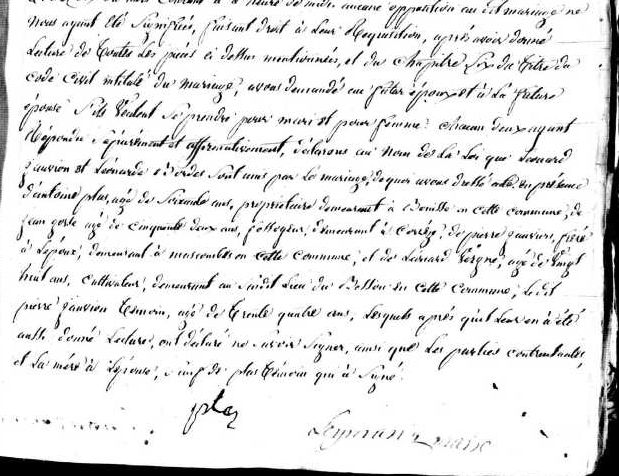 à heure de midi, aucune opposition au dit mariage ne
nous ayant été signifiée, faisant droit à leur Requisition, après avoir donné
Lecture de toutes Les pièces ci dessus mentionnées, et du chapitre six du titre du
code Civil intitulé du mariage, avons demandé au futur époux et à La future
épouse S'ils Veulent Se prendre pour mari et pour femme. chacun d'eux ayant
Répondu Séparément et affirmativement, déclarons au nom de La Loi que Léonard
Janvion et Léonarde Bordes Sont unis par Le mariage, de quoi avons dressé acte en présence
d'antoine plas, agé de Soixante ans, propriétaire demeurant à en cette commune, de
jean agé de cinquante deux ans, demeurant à de pierre janvion, frère
à L'époux, demeurant à en cette Commune, et de Léonard Vergne, agé de Vingt
huit ans, cultivateur, demeurant au Susdit Lieu du en cette Commune, Ledit
pierre janvion témoin, agé de trente quatre ans, Lesquels après qu'il Leur en a été
aussi donné Lecture, ont déclaré ne Savoir Signer, ainsi que Les parties contractantes,
et La mère à L'épouse, plas témoin qui à Signé.
plas